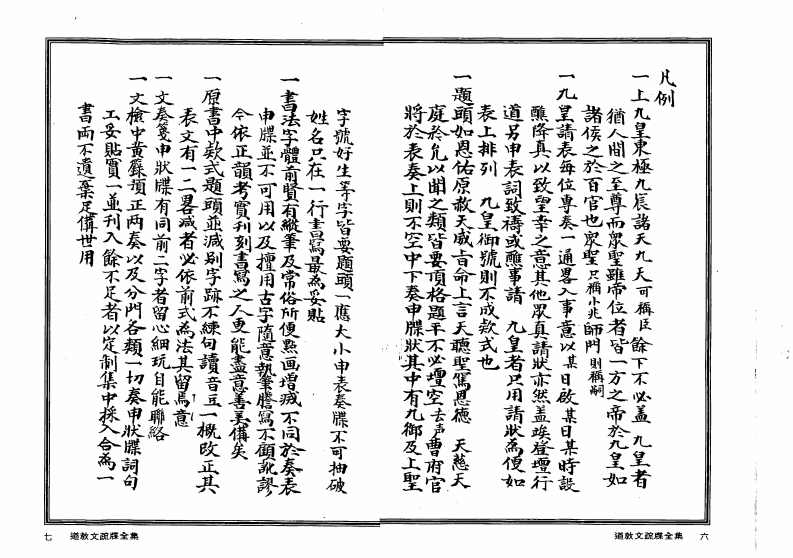 凡例
一上九皇東極九宸諸天九天可稱臣餘下不必盖 九皇者
猶人間之至尊而眾聖雖帝位者皆一方之帝於九皇如
諸侯之於百官也眾聖只稱小兆師門則稱嗣
一九皇請表每位專奏一通畧入事意以某日啟某日某時設
醮降真以致望幸之意其他眾真請狀亦然盖竢登壇行
道另申表詞致禱或醮事請 九皇者只用請狀為便如
表上排列 九皇御號則不成款式也
一題頭如恩佑原赦天威言命上言天聽聖駕恩德 天慈天
庭於允以聞之類皆要頂格題平不必壇空去声曹府官
將於表奏上則不空中下奏申牒狀其中有九御及上聖
字號好生等字皆要題頭一應大小申表奏牒不可抽破
姓名只在一行書寫最為妥貼
一書法字體前賢有縱筆及常俗所便點画增減不同於奏表
申牒並不可用以及擅用古字隨意執筆謄寫不顧訛謬
今依正韻考實刊刻書寫之人更能盡意善美備矣
一原書中欵式題頭並減別字跡不練句讀音豆一概改正其
表文有一二畧减者必依前式為法其留馬意
一文奏箋申狀牒有同前二字者留心細玩自能聯絡
一文檢中黃籙須正兩奏以及分門各類一切奏申狀牒詞句
工妥貼實一並刊入餘不足者以定制集中採入合為一
書兩不遺棄足備世用
道教文疏牒全集 六
七 道教文疏牒全集